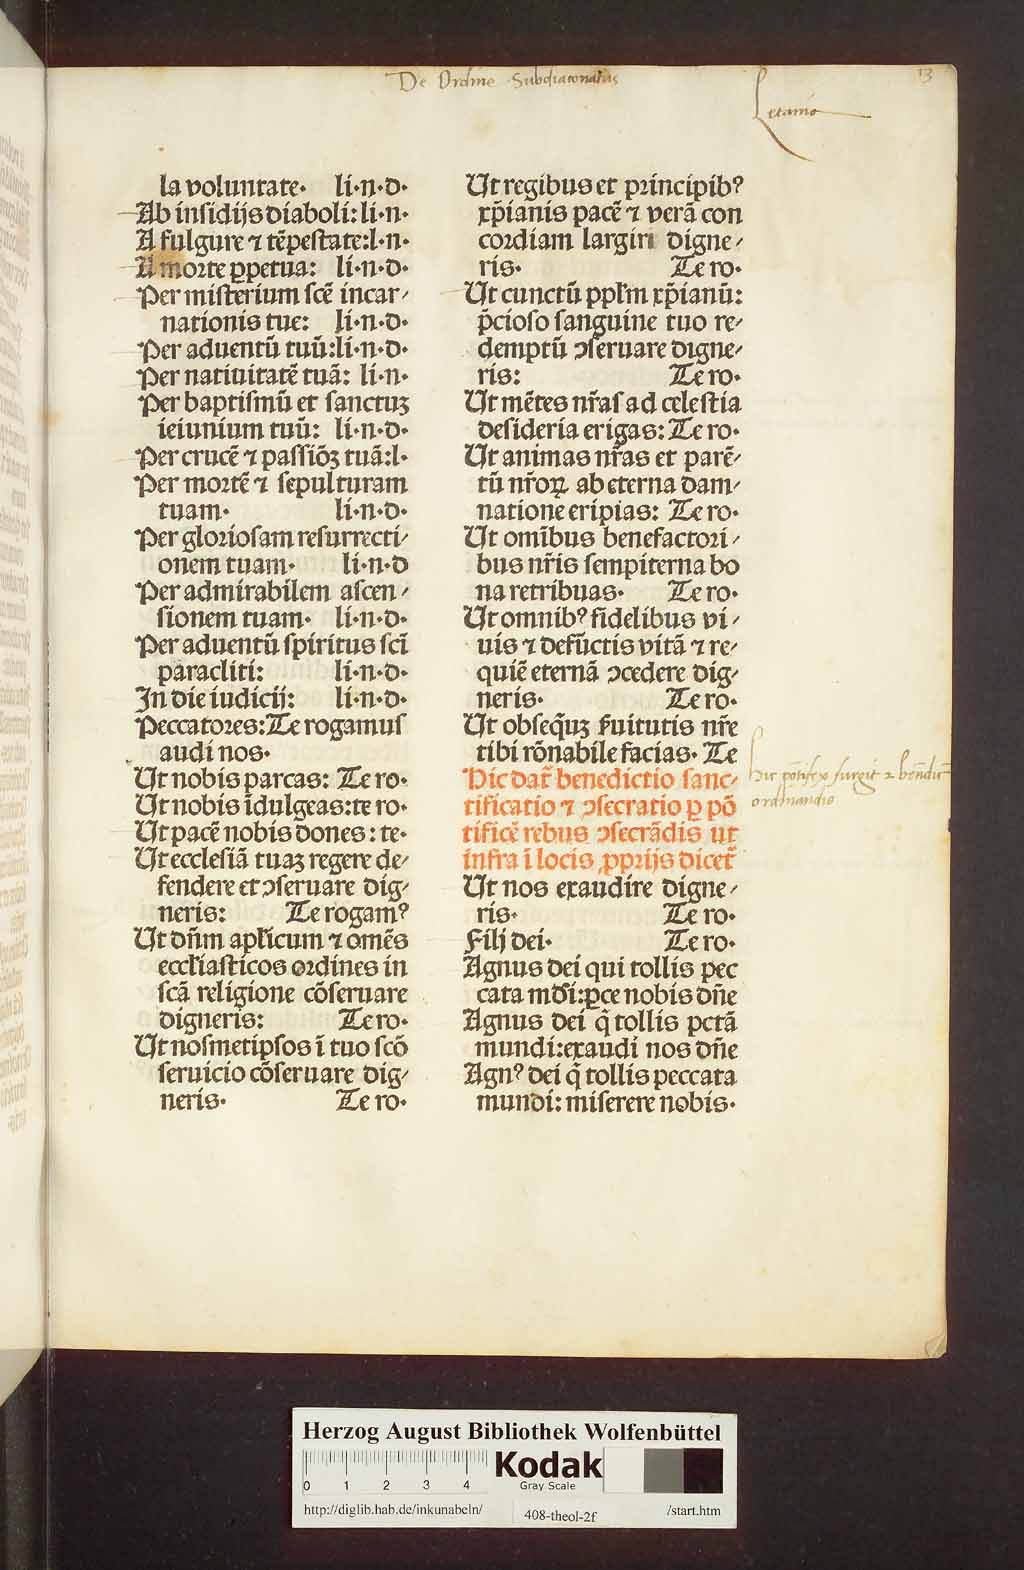 De Ordine Subdiaconatus
13
Letanie
la voluntate. li.n.d.
Ab insidijs diaboli: li.n.
A fulgure ⁊ tẽpestate: l.n.
A morte ꝑpetua: li.n.d.
Per misterium scẽ incar-
nationis tue: li.n.d.
Per aduentũ tuũ: li.n.d.
Per natiuitatẽ tuã: li.n.
Per baptismũ et sanctuꝫ
ieiunium tuũ: li.n.d.
Per crucẽ ⁊ passiõꝫ tuã: l.
Per mortẽ ⁊ sepulturam
tuam. li.n.d.
Per gloriosam resurrecti-
onem tuam. li.n.d
Per admirabilem ascen-
sionem tuam. li.n.d.
Per aduentũ spiritus scĩ
paracliti: li.n.d.
In die iudicij: li.n.d.
Peccatores: Te rogamus
audi nos.
Ut nobis parcas: Te ro.
Ut nobis ĩdulgeas: te ro.
Ut pacẽ nobis dones: te.
Ut ecclesiã tuaꝫ regere de-
fendere et ꝯseruare dig-
neris: Te rogamꝰ
Ut dñm apl̃icum ⁊ omẽs
eccl̃iasticos ordines in
scã religione cõseruare
digneris: Te ro.
Ut nosmetipsos ĩ tuo scõ
seruicio cõseruare dig-
neris. Te ro.
Ut regibus et principibꝰ
xp̃ianis pacẽ ⁊ verã con
cordiam largiri digne-
ris. Te ro.
Ut cunctũ ppl̃m xp̃ianũ:
p̃cioso sanguine tuo re-
demptũ ꝯseruare digne-
ris: Te ro.
Ut mẽtes nr̃as ad celestia
desideria erigas: Te ro.
Ut animas nr̃as et parẽ-
tũ nr̃oꝝ ab eterna dam-
natione eripias: Te ro.
Ut omĩbus benefactori-
bus nr̃is sempiterna bo
na retribuas. Te ro.
Ut omnibꝰ fidelibus vi-
uis ⁊ defũctis vitã ⁊ re-
quiẽ eternã ꝯcedere dig-
neris. Te ro.
Ut obsequꝫ s̃uitutis nr̃e
tibi rõnabile facias. Te
Hic dat̃ benedictio sanc-
tificatio ⁊ ꝯsecratio ꝑ põ
tificẽ rebus ꝯsecrãdis ut
infra ĩ locis ꝓprijs dicet̃
Hic põtifex surgit ⁊ bñdic̃
ordinandis
Ut nos exaudire digne-
ris. Te ro.
Filj dei. Te ro.
Agnus dei qui tollis pec
cata mũdi: ꝑce nobis dñe
Agnus dei q̃ tollis pctã
mundi: exaudi nos dñe
Agnꝰ dei q̃ tollis peccata
mundi: miserere nobis.
Herzog August Bibliothek Wolfenbüttel
0 1 2 3 4
Kodak
Gray Scale
http://diglib.hab.de/inkunabeln/ 408-theol-2f /start.htm